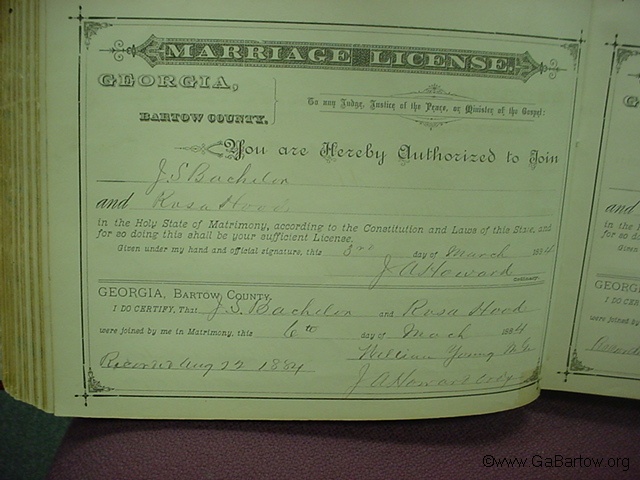 MARRIAGE LICENSE.
GEORGIA,
BARTOW COUNTY.
To any Judge, Justice of the Peace, or Minister of the Gospel:
You are Hereby Authorized to Join
J. S Bachelor
and Rosa Hood
in the Holy State of Matrimony, according to the Constitution and Laws of this State, and
for so doing this shall be your sufficient License.
Given under my hand and official signature, this 3rd day of March 1884
J A Howard
Ordinary.
GEORGIA, BARTOW COUNTY.
I DO CERTIFY, That J. S. Bachelor and Rosa Hood
were joined by me in Matrimony, this 6th day of Mach 1884
William Young M.G.
Recorded Aug 22 1884
J A Howard Ordy
and
in the Holy
for so doing
Given
GEORG
I DO
were joi
©www.GaBartow.org